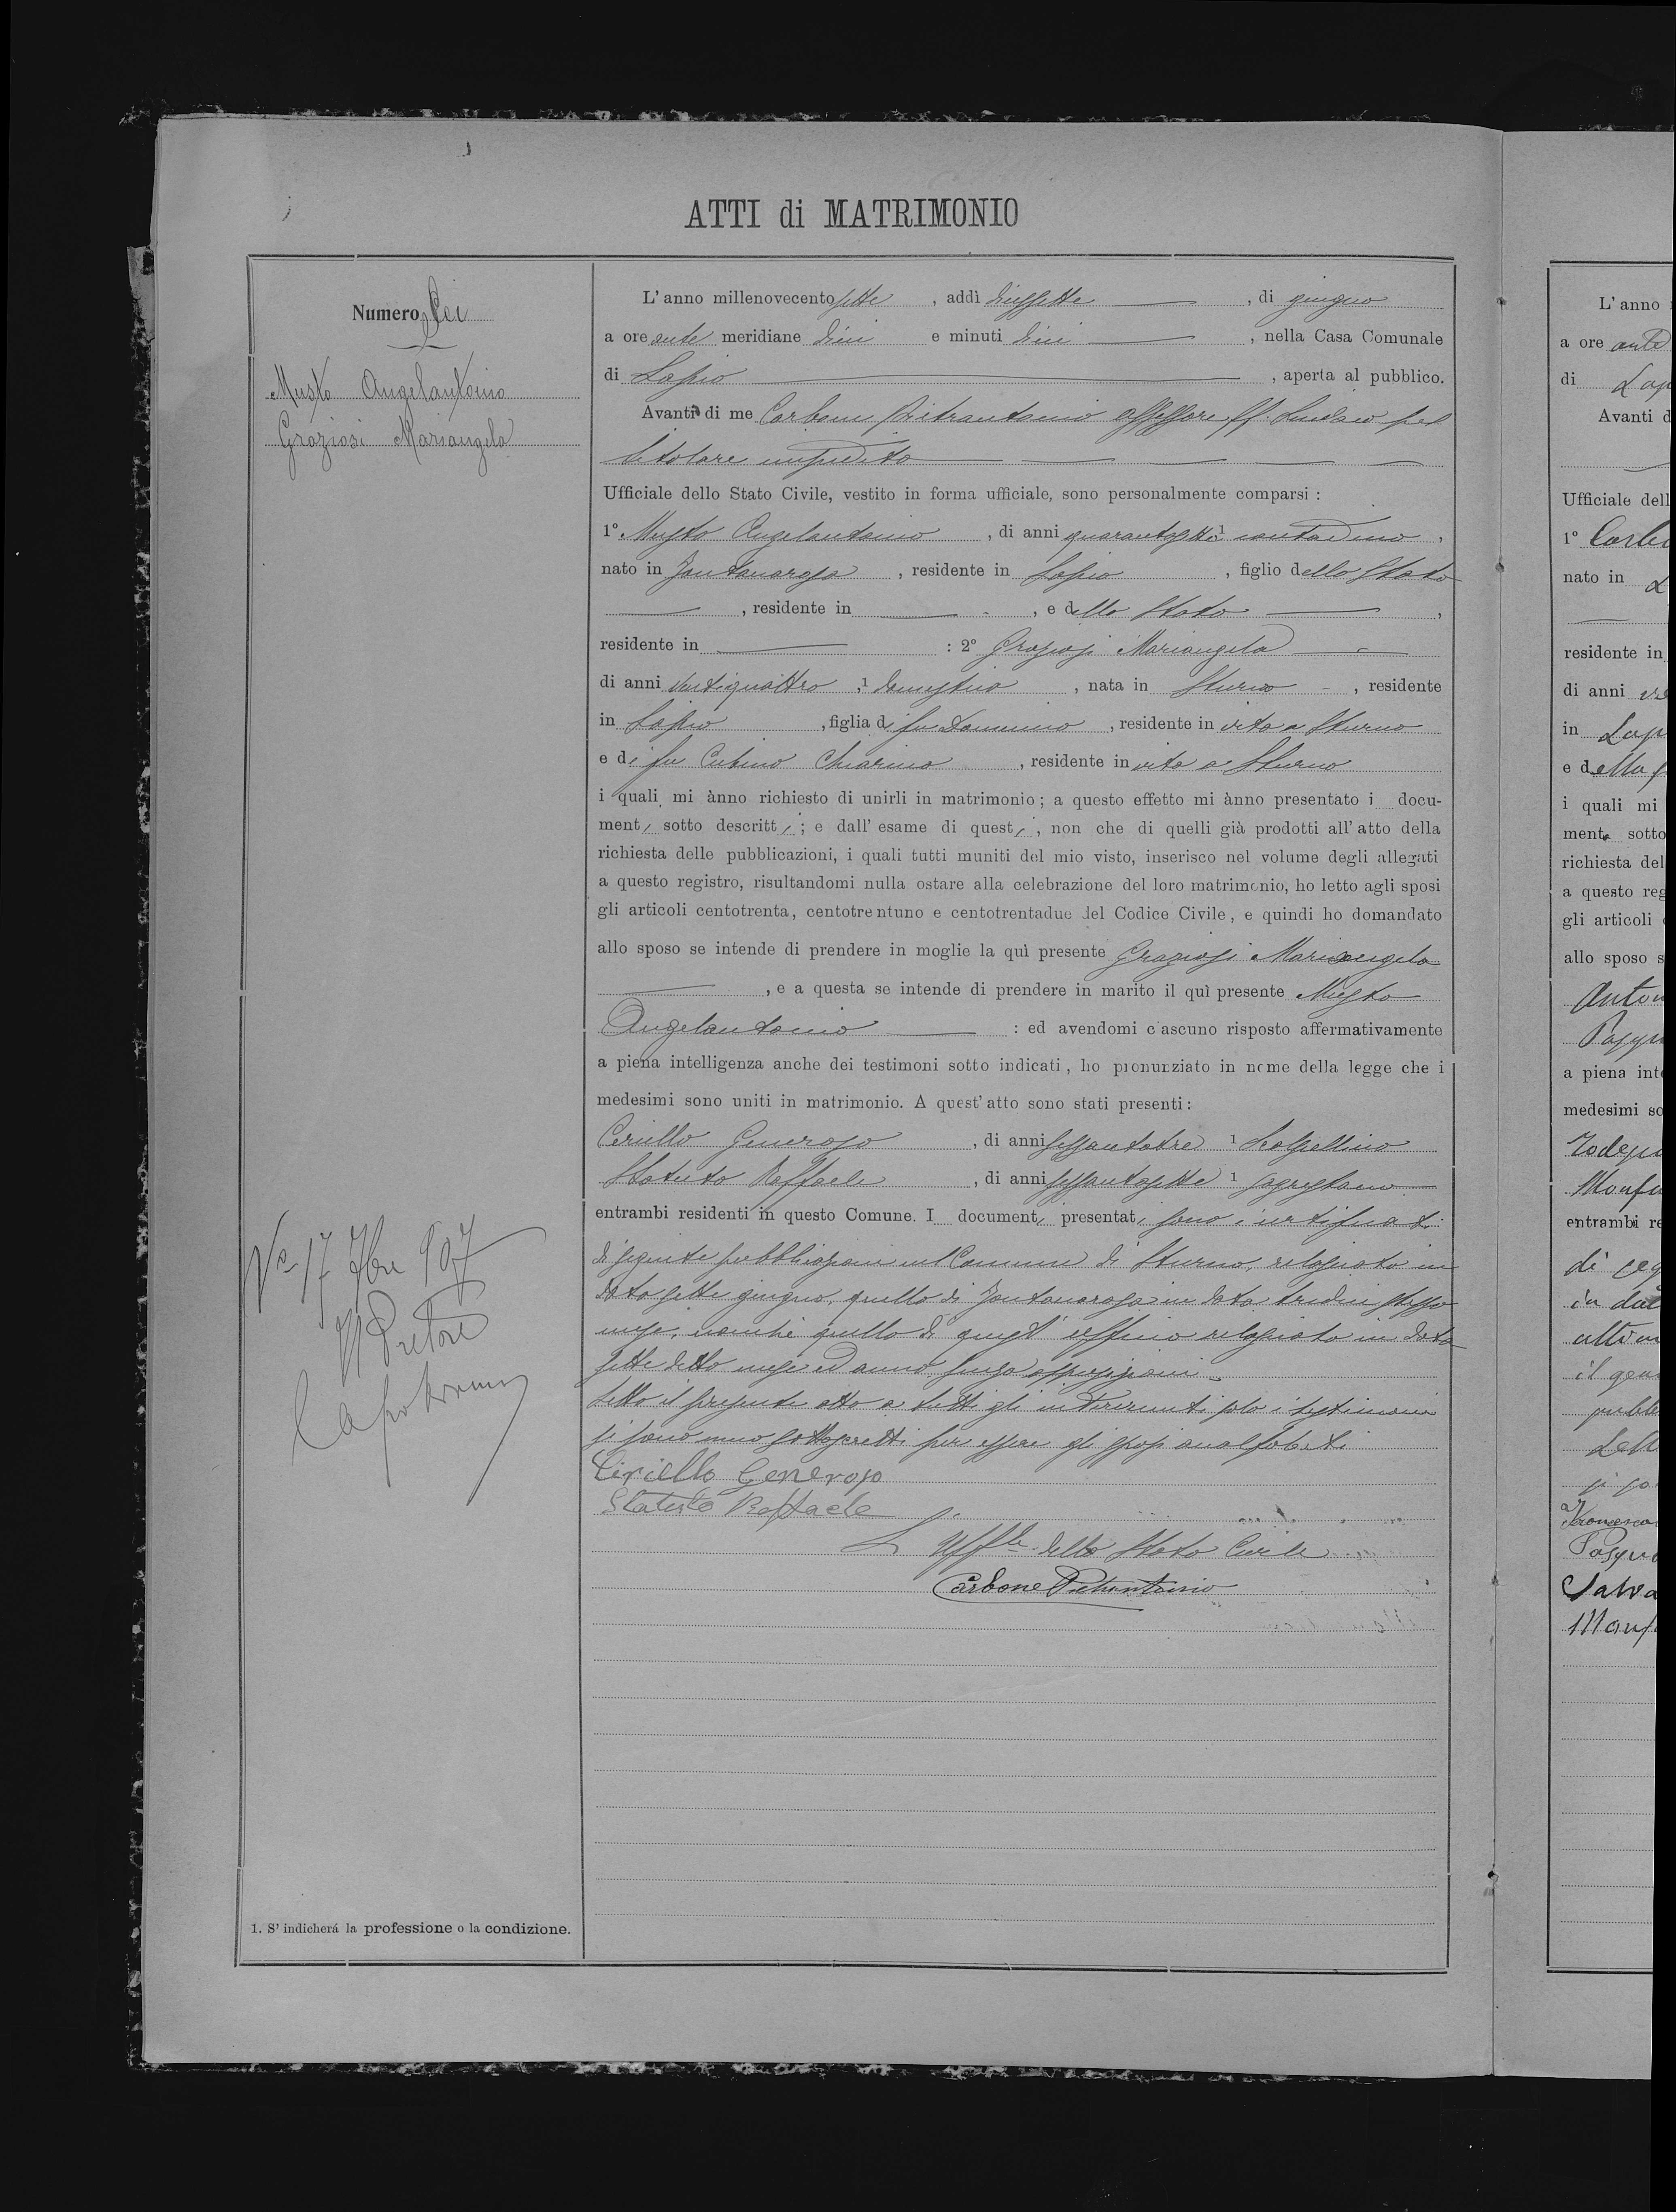 ATTI di MATRIMONIO
Numero Sei
Musto Angelantonio
Graziosi Mariangela
L'anno millenovecentosette, addì diecissette, di giugno
a ore ante meridiane dieci e minuti dieci, nella Casa Comunale
di Lapio, aperta al pubblico.
Avanti di me Carbone Pietrantonio assessore ff. Sindaco pel
titolare impedito
Ufficiale dello Stato Civile, vestito in forma ufficiale, sono personalmente comparsi:
1º Musto Angelantonio, di anni quarantasette 1 contadino,
nato in Fontanarosa, residente in Lapio, figlio dello Stato
, residente in , e dello Stato ,
residente in : 2º Graziosi Mariangela
di anni ventiquattro, 1 domestica, nata in Sturno, residente
in Lapio, figlia di fu Domenico, residente in vita a Sturno
e di fu Cubino Chiarina, residente in vita a Sturno
i quali mi ànno richiesto di unirli in matrimonio; a questo effetto mi ànno presentato i docu-
menti sotto descritti; e dall'esame di questi, non che di quelli già prodotti all'atto della
richiesta delle pubblicazioni, i quali tutti muniti del mio visto, inserisco nel volume degli allegati
a questo registro, risultandomi nulla ostare alla celebrazione del loro matrimonio, ho letto agli sposi
gli articoli centotrenta, centotrentuno e centotrentadue del Codice Civile, e quindi ho domandato
allo sposo se intende di prendere in moglie la quì presente Graziosi Mariangela
, e a questa se intende di prendere in marito il quì presente Musto
Angelantonio : ed avendomi ciascuno risposto affermativamente
a piena intelligenza anche dei testimoni sotto indicati, ho pronunziato in nome della legge che i
medesimi sono uniti in matrimonio. A quest'atto sono stati presenti:
Ceriello Generoso, di anni sessantatre 1 scalpellino
Statuto Raffaele, di anni sessantasette 1 sagrestano
entrambi residenti in questo Comune. I documenti presentati sono i certificati
di seguite pubblicazioni nel Comune di Sturno, rilasciato in
data sette giugno, quello di Fontanarosa in data tredici stesso
mese, nonchè quello di quest'ufficio rilasciato in data
sette detto mese ed anno senza opposizioni.
Letto il presente atto a tutti gli intervenuti solo i testimoni
si sono meco sottoscritti per essere gli sposi analfabeti
Ciriello Generoso
Statuto Raffaele
L'Uffle dello Stato Civile
Carbone Pietrantonio
Vo 17 7bre 907
Il Pretore
1. S'indicherá la professione o la condizione.
L'anno
a ore ante
di Lap
Avanti d
Ufficiale dell
1º Carbo
nato in L
residente in
di anni
in Lap
e della
i quali mi
menti sotto
richiesta del
a questo reg
gli articoli
allo sposo s
Anton
Pasqu
a piena inte
medesimi so
entrambi re
di seg
in da
ultim
il gen
pubbl
Lett
si so
Francesco
Pasqua
Salva
Manf